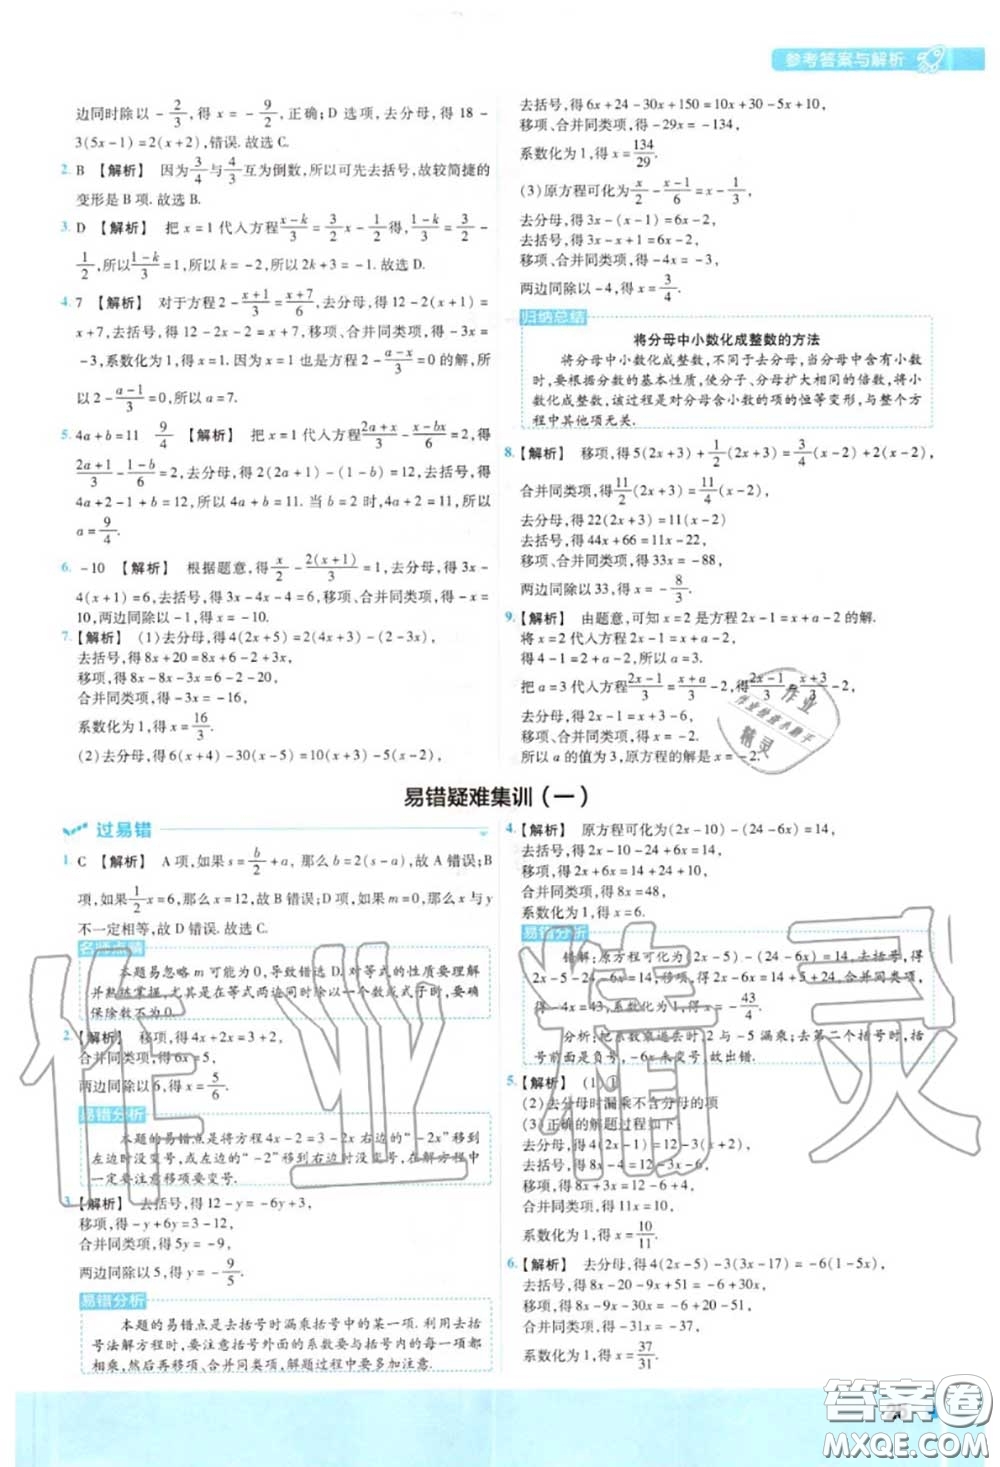 参考答案与解析
边同时除以 - 2/3,得 x = - 9/2,正确;D 选项,去分母,得 18 -
3(5x-1)=2(x+2),错误. 故选 C.
2. B 【解析】 因为 3/4 与 4/3 互为倒数,所以可先去括号,故较简捷的
变形是 B 项. 故选 B.
3. D 【解析】 把 x=1 代入方程 (x-k)/3 = 3/2 x - 1/2 得, (1-k)/3 = 3/2 -
1/2,所以 (1-k)/3 =1,所以 k=-2,所以 2k+3=-1. 故选 D.
4. 7 【解析】 对于方程 2 - (x+1)/3 = (x+7)/6,去分母,得 12-2(x+1)=
x+7,去括号,得 12-2x-2=x+7,移项、合并同类项,得 -3x=
-3,系数化为 1,得 x=1. 因为 x=1 也是方程 2 - (a-x)/3 =0 的解,所
以 2 - (a-1)/3 =0,所以 a=7.
5. 4a+b=11 9/4 【解析】 把 x=1 代入方程 (2a+x)/3 - (x-bx)/6 =2,得
(2a+1)/3 - (1-b)/6 =2,去分母,得 2(2a+1)-(1-b)=12,所以
4a+2-1+b=12,所以 4a+b=11. 当 b=2 时,4a=9,所以
a= 9/4.
6. -10 【解析】 根据题意,得 x/2 - 2(x+1)/3 =1,去分母,得 3x-
4(x+1)=6,去括号,得 3x-4x-4=6,移项、合并同类项,得 -x=
10,两边同除以 -1,得 x=-10.
7. 【解析】 (1)去分母,得 4(2x+5)=2(4x-3)-(2-3x),
去括号,得 8x+20=8x-6-2+3x,
移项,得 8x-8x-3x=-6-2-20,
合并同类项,得 -3x=-28,
系数化为 1,得 x= /3.
(2)去分母,得 6(x+4)-30(x-5)=10(x+3)-5(x-2),
去括号,得 6x+24-30x+150=10x+30-5x+10,
移项、合并同类项,得 -29x=-134,
系数化为 1,得 x= 134/29.
(3)原方程可化为 x/2 - (x-1)/6 = x - 1/3,
去分母,得 3x-(x-1)=6x-2,
去括号,得 3x-x+1=6x-2,
移项、合并同类项,得 -4x=-3,
两边同除以 -4,得 x= 3/4.
归纳总结
将分母中小数化成整数的方法
将分母中小数化成整数,不同于去分母,当分母中含有小数
时,要根据分数的基本性质,使分子、分母扩大相同的倍数,将小
数化成整数,该过程是对分母含小数的项的恒等变形,与整个方
程中其他项无关.
8. 【解析】 移项,得 5(2x+3)+ 1/2 (2x+3)= 3/4 (x-2)+2(x-2),
合并同类项,得 11/2 (2x+3)= 11/4 (x-2),
去分母,得 22(2x+3)=11(x-2)
去括号,得 44x+66=11x-22,
移项、合并同类项,得 33x=-88,
两边同除以 33,得 x=- 8/3.
9. 【解析】 由题意,可知 x=2 是方程 2x-1=x+a-2 的解.
将 x=2 代入方程 2x-1=x+a-2,
得 4-1=2+a-2,所以 a=3.
把 a=3 代入方程 (2x-1)/3 = (x+a)/3 -2,得 (2x-1)/3 = (x+3)/3 -2,
去分母,得 2x-1=x+3-6,
移项、合并同类项,得 x=-2.
所以 a 的值为 3,原方程的解是 x=-2.
易错疑难集训(一)
过易错
1. C 【解析】 A 项,如果 s= b/2 +a, 那么 b=2(s-a),故 A 错误;B
项,如果 1/2 x=6,那么 x=12,故 B 错误;D 项,如果 m=0,那么 x 与 y
不一定相等,故 D 错误. 故选 C.
名师点睛
本题易忽略 m 可能为 0,导致错选 D. 对等式的性质要理解
并熟练掌握,尤其是在等式两边同时除以一个数或式子时,要确
保除数不为 0.
2. 【解析】 移项,得 4x+2x=3+2,
合并同类项,得 6x=5,
两边同除以 6,得 x= 5/6.
易错分析
本题的易错点是将方程 4x-2=3-2x 右边的“-2x”移到
左边时没变号,或左边的“-2”移到右边时没变号,在解方程中
一定要注意移项要变号.
3. 【解析】 去括号,得 12-y=-6y+3,
移项,得 -y+6y=3-12,
合并同类项,得 5y=-9,
两边同除以 5,得 y=- 9/5.
易错分析
本题的易错点是去括号时漏乘括号中的某一项. 利用去括
号法解方程时,要注意括号外面的系数要与括号内的每一项都
相乘,然后再移项、合并同类项,解题过程中要多加注意.
4. 【解析】 原方程可化为(2x-10)-(24-6x)=14,
去括号,得 2x-10-24+6x=14,
移项,得 2x+6x=14+10+24,
合并同类项,得 8x=48,
系数化为 1,得 x=6.
易错分析
错解:原方程可化为(2x-5)-(24-6x)=14,去括号,得
2x-5-24-6x=14,移项,得 2x-6x=14+5+24,合并同类项,
得 -4x=43,系数化为 1,得 x=- 43/4.
分析:把系数乘进去时,2 与 -5 漏乘;去第二个括号时,括
号前面是负号,-6x 未变号,故出错.
5. 【解析】 (1)①
(2)去分母时漏乘不含分母的项
(3)正确的解题过程如下:
去分母,得 4(2x-1)=12-3(x+2),
去括号,得 8x-4=12-3x-6,
移项,得 8x+3x=12-6+4,
合并同类项,得 11x=10,
系数化为 1,得 x= 10/11.
6. 【解析】 去分母,得 4(2x-5)-3(3x-17)=6(5x-1),
移项,得 8x-9x-30x=-6+20-51,
合并同类项,得 -31x=-37,
系数化为 1,得 x= 37/31.
作业精灵
作业
精灵
答案圈
MXQE.COM